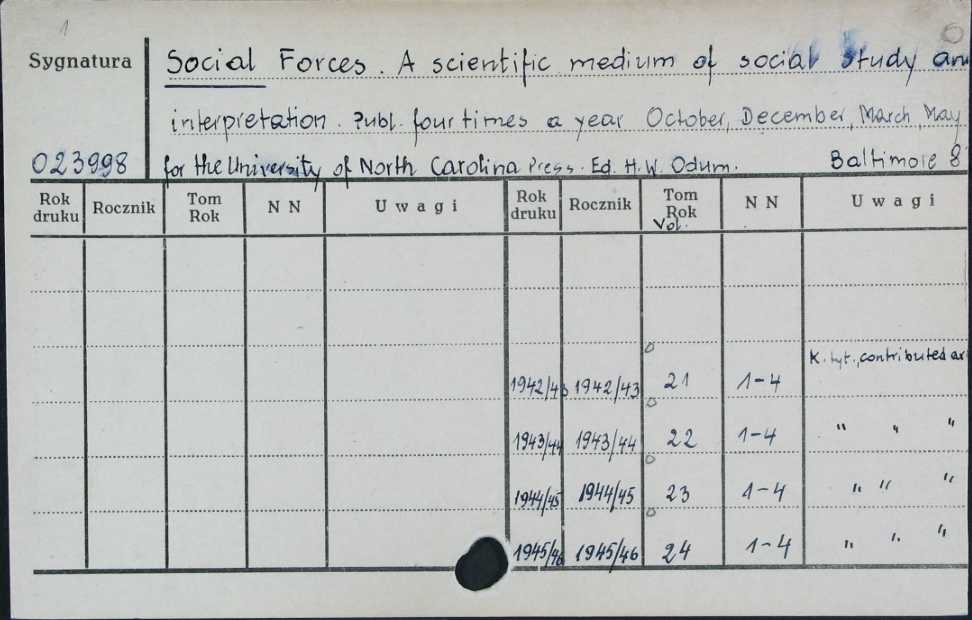 1
Sygnatura Social Forces. A scientific medium of social study an
interpretation. Publ. four times a year October, December, March, May
023998 for the University of North Carolina Press. Ed. H. W. Odum. Baltimore 8
Rok druku Rocznik Tom Rok N N Uwagi Rok druku Rocznik Tom Rok Vol. N N Uwagi
K. tyt., contributed ar
1942/43 1942/43 21 1-4
1943/44 1943/44 22 1-4 " " "
1944/45 1944/45 23 1-4 " " "
1945/46 1945/46 24 1-4 " " "